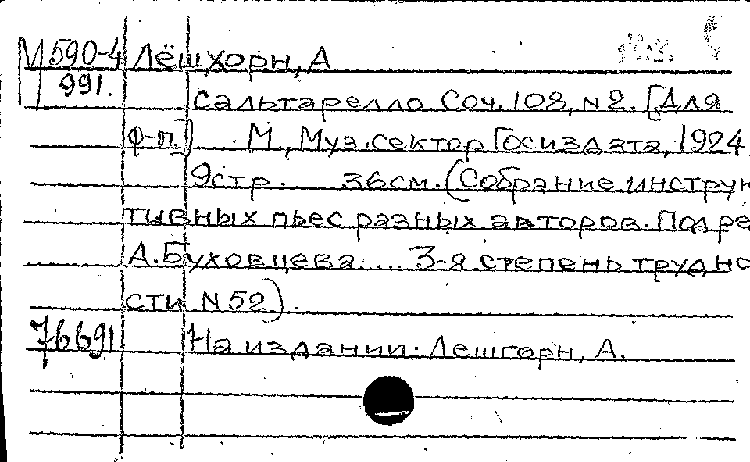 М590-4 Лёшхорн, А
991.
Сальтарелло Соч. 108, N2. [Для
ф-п.] М., Муз. сектор Госиздата, 1924
9стр. 36см. (Собрание инструк
тивных пьес разных авторов. Под ре
А. Буховцева.... 3-я степень трудно
сти N52).
76691 На издании: Лешгорн, А.